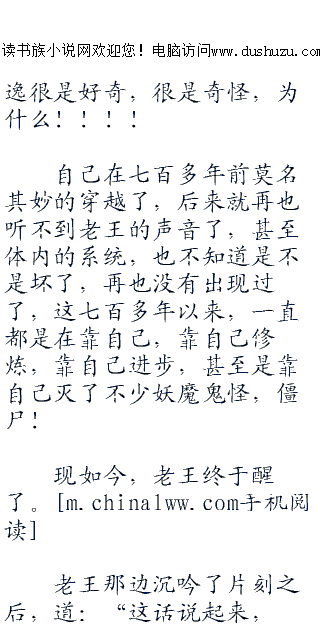 读书族小说网欢迎您！电脑访问www.dushuzu.com
逸很是好奇，很是奇怪，为
什么！！！！
自己在七百多年前莫名
其妙的穿越了，后来就再也
听不到老王的声音了，甚至
体内的系统，也不知道是不
是坏了，再也没有出现过
了，这七百多年以来，一直
都是在靠自己，靠自己修
炼，靠自己进步，甚至是靠
自己灭了不少妖魔鬼怪，僵
尸！
现如今，老王终于醒
了。[m.chinalww.com手机阅
读]
老王那边沉吟了片刻之
后，道：“这话说起来，